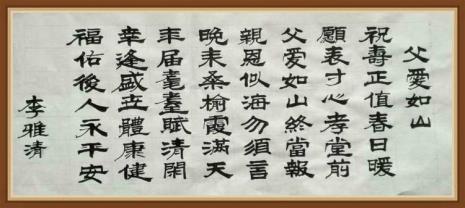 父愛如山
祝壽正值春日暖
願表寸心孝堂前
父愛如山終當報
親恩似海勿須言
晚来桑榆霞滿天
年届耄耋賦清閑
幸逢盛世體康健
福佑後人永平安
李雅清